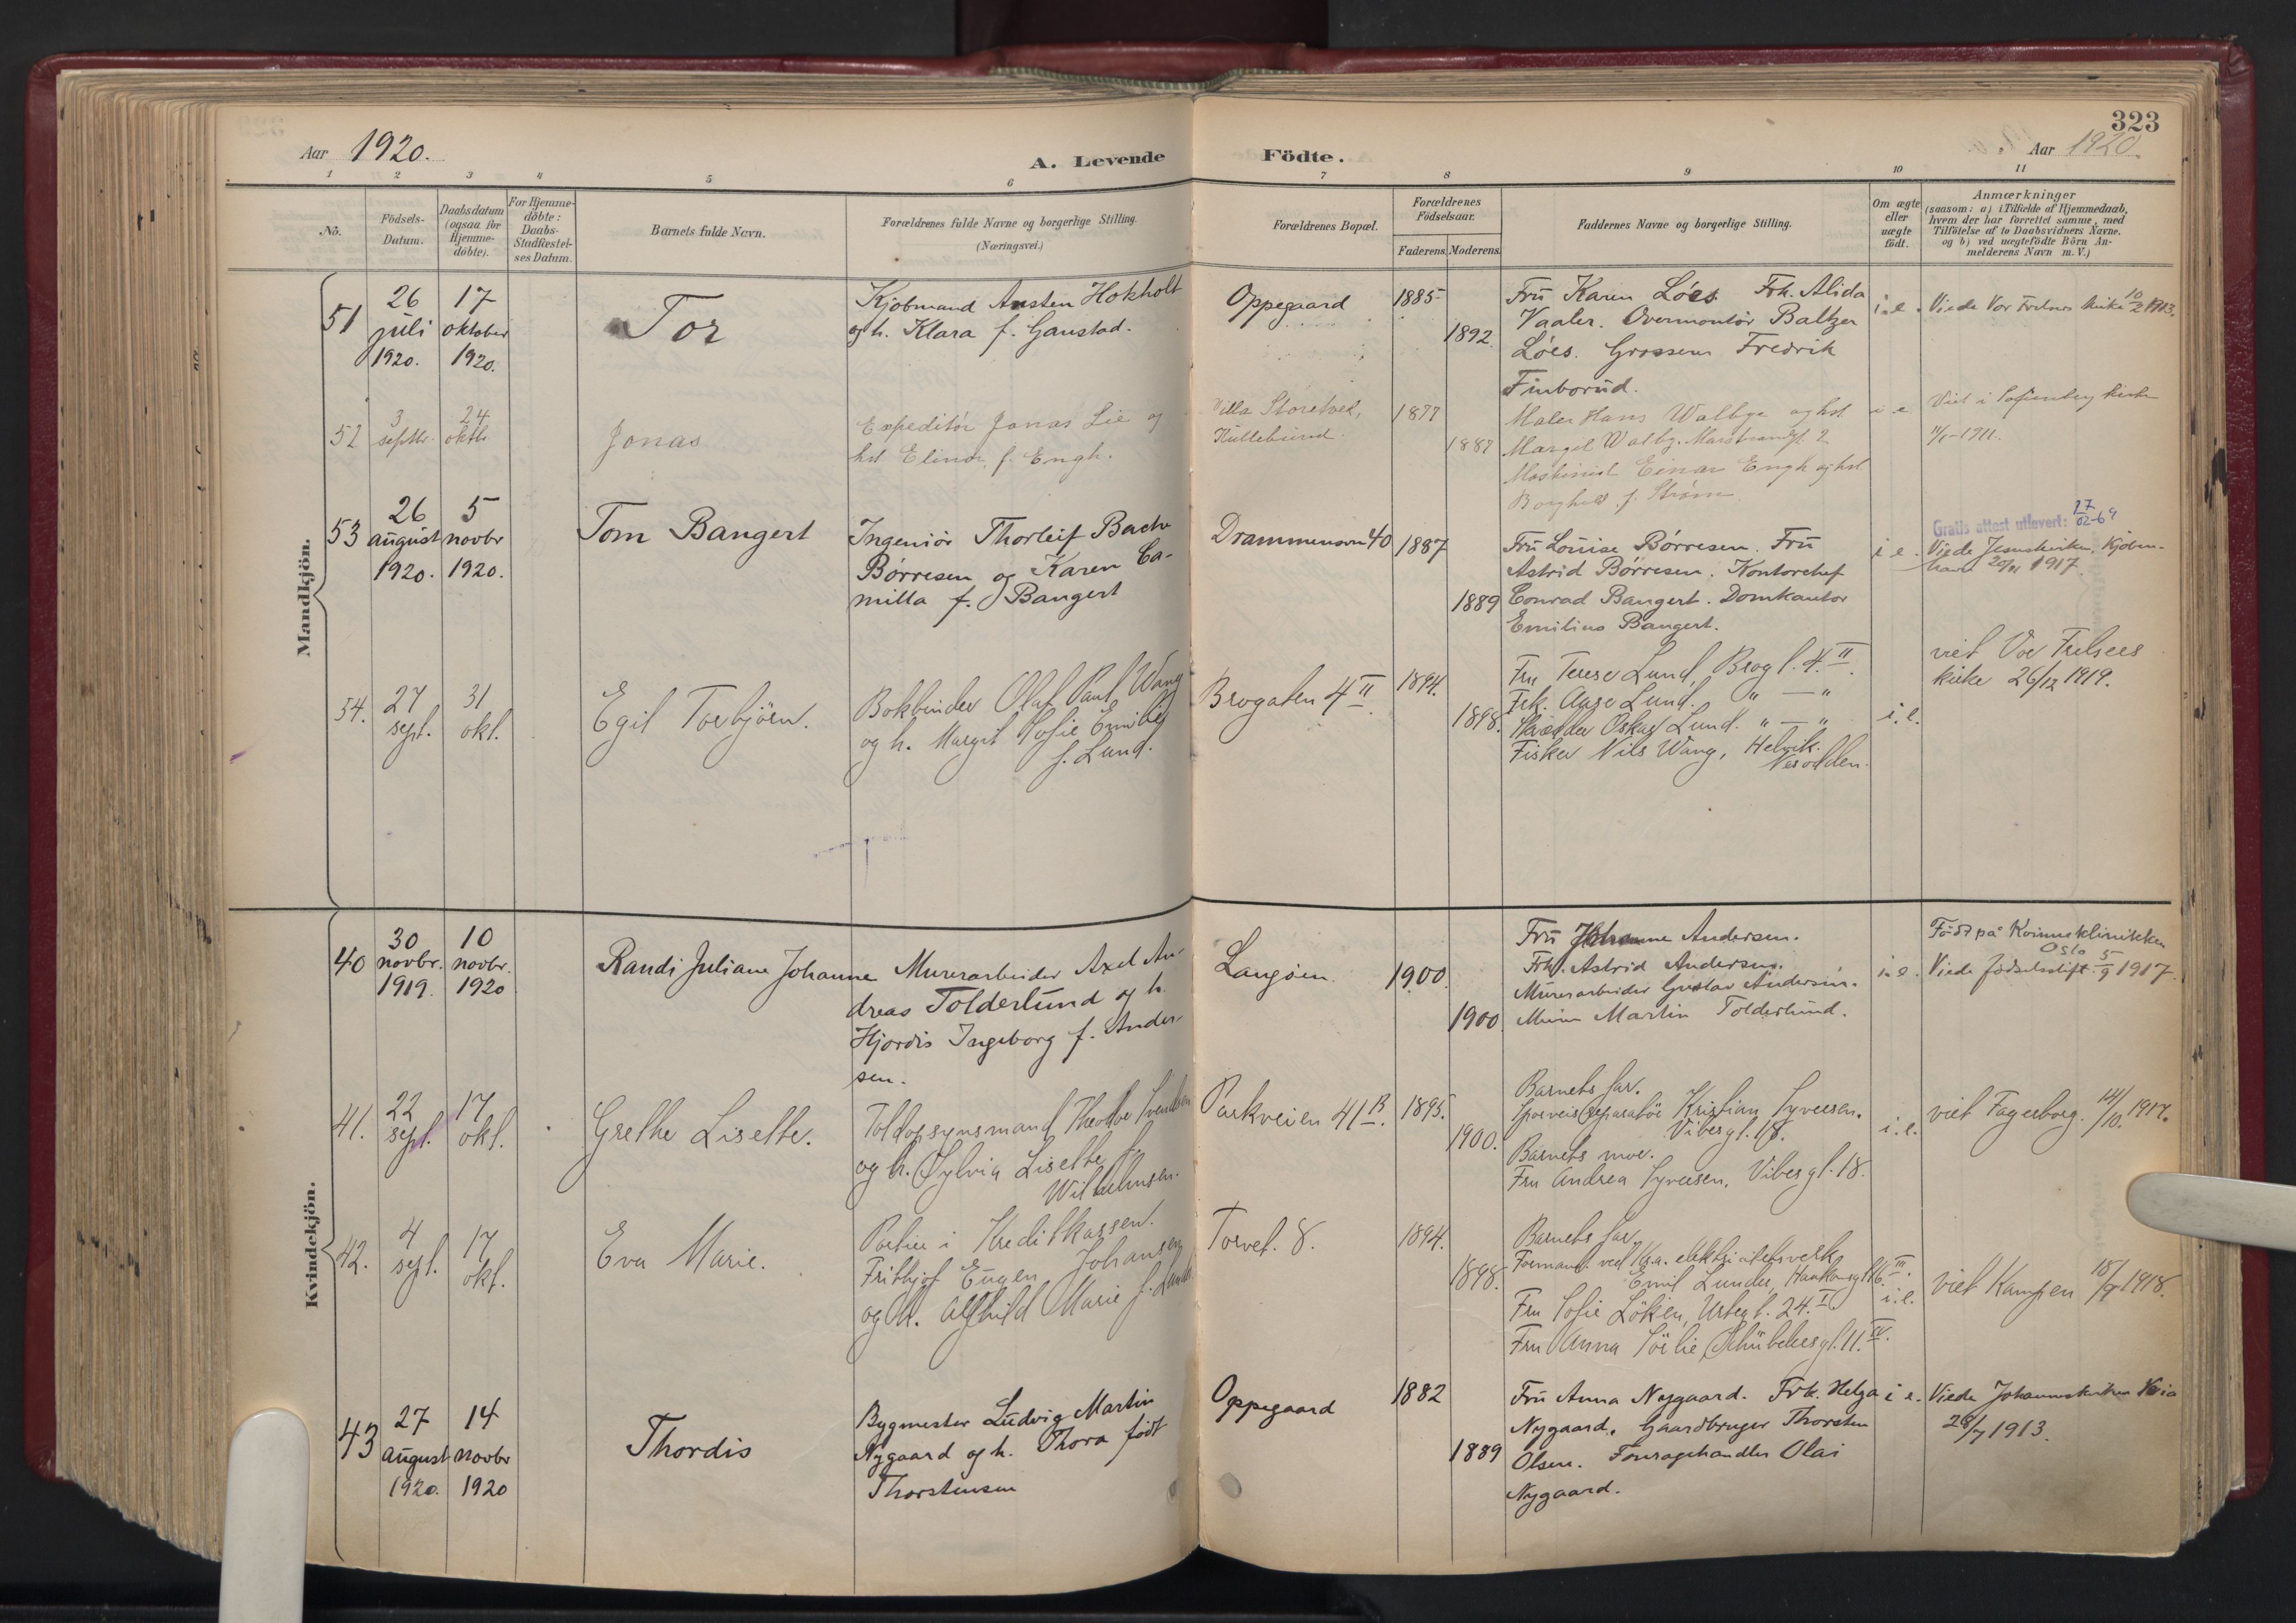 323
Aar 1920.
A. Levende
Födte.
Aar 1920.
1 2 3 4 5 6 7 8 9 10 11
No.
Födsels-
Datum.
Daabsdatum
(ogsaa for
Hjemme-
döbte).
For Hjemme-
döbte:
Daabs-
Stadfæstel-
ses Datum.
Barnets fulde Navn.
Forældrenes fulde Navne og borgerlige Stilling.
(Næringsvei.)
Forældrenes Bopæl.
Forældrenes
Födselsaar.
Faderens. Moderens.
Faddernes Navne og borgerlige Stilling.
Om ægte
eller
uægte
födt.
Anmærkninger
(saasom: a) i Tilfælde af Hjemmedaab,
hvem der har forrettet samme, med
Tilföielse af to Daabsvidners Navne.
og b) ved uægtefödte Börn An-
melderens Navn m. V.)
Mandkjön.
51
26
juli
1920.
17
oktober
1920.
Tor
Kjøbmand Austen Hokholt
og h. Klara f. Gaustad.
Oppegaard
1885
1892
Fru Karen Löes Frk. Alida
Vaaler. Overmontør Baltzer
Löes. Grosserer Fredrik
Finborud.
i e.
Viede Vor Frelsers kirke 10/2 1913.
52
3
septbr.
24
oktbr
Jonas
Expeditör Jonas Lie og
hst Elinor, f. Engh.
Villa Storetvet,
Kullebund.
1877
1887
Maler Hans Walbye og hst
Margit Walby. Marstrandgt. 2
Maskinist Einar Engh og hst
Borghild f. Strøm.
i e.
Viet i Sofienberg kirke
11/1-1911.
53
26
august
1920.
5
novbr
1920.
Tom Bangert
Ingeniör Thorleif Bache
Börresen og Karen Ca-
milla f. Bangert
Drammensvn 40
1887
1889
Fru Louise Börresen. Fru
Astrid Börresen. Kontorchef
Conrad Bangert. Domkantor
Emilius Bangert.
i e.
Gratis attest utlevert: 27/02-69
Viede Jesuskirken, Kjöben-
havn 20/11 1917.
54.
27
sept.
31
okt.
Egil Torbjörn.
Bokbinder Olaf Paul Wang
og h. Margit Sofie Emilie
f. Lund.
Brogaten 4 II.
1894.
1898.
Fru Terese Lund, Brogt. 4. II.
Frk. Aase Lund. " — "
Skrædder Oskar Lund. " — "
Fisker Nils Wang, Helvik.
Nesodden.
i. e.
viet Vor Frelsers
kirke 26/12 1919.
Kvindekjön.
40
30
novbr.
1919.
10
novbr.
1920
Randi Juliane Johanne
Murerarbeider Axel An-
dreas Tolderlund og h.
Hjördis Ingeborg f. Ander-
sen.
Langöien.
1900.
1900.
Fru Johanne Andersen.
Frk. Astrid Andersen.
Murerarbeider Gustav Andersen.
Murer Martin Tolderlund.
i e.
Födt på Kvinneklinikken
Oslo
Viede födselsstift. 5/9 1917.
41.
22
sept.
17
okt.
Grethe Lisette.
Toldopsynsmand Theodor Svendsen
og h. Sylvia Lisette f.
Wilhelmsen.
Parkveien 41 B.
1895.
1900.
Barnets far.
Sporveisreparatör Kristian Syversen.
Vibesgt. 18.
Barnets mor.
Fru Andrea Syversen, Vibesgt. 18.
i. e.
viet Fagerborg. 14/10. 1917.
42.
4
sept.
17
okt.
Eva Marie.
Portier i Kreditkassen.
Frithjof Eugen Johansen
og h. Alfhild Marie f. Lunde
Torvet. 8.
1894.
1898.
Barnets far.
Formand ved Kr.a. elektricitetsverk
Emil Lunde, Haakonsgt. 16. III.
Fru Sofie Löken, Urtegt. 24. I
Fru Anna Sörlie, Schübelersgt. 11. IV.
i. e.
viet Kampen 18/9 1918.
43
27
august
1920.
14
novbr
1920
Thordis
Bygmester Ludvig Martin
Nygaard og h. Thora födt
Thorstensen
Oppegaard
1882
1889
Fru Anna Nygaard. Frk. Helga
Nygaard, Gaardbruger Thorsten
Olsen. Fouragehandler Olai
Nygaard.
i e.
Viede Johanneskirken Kr.ia
28/7 1913.